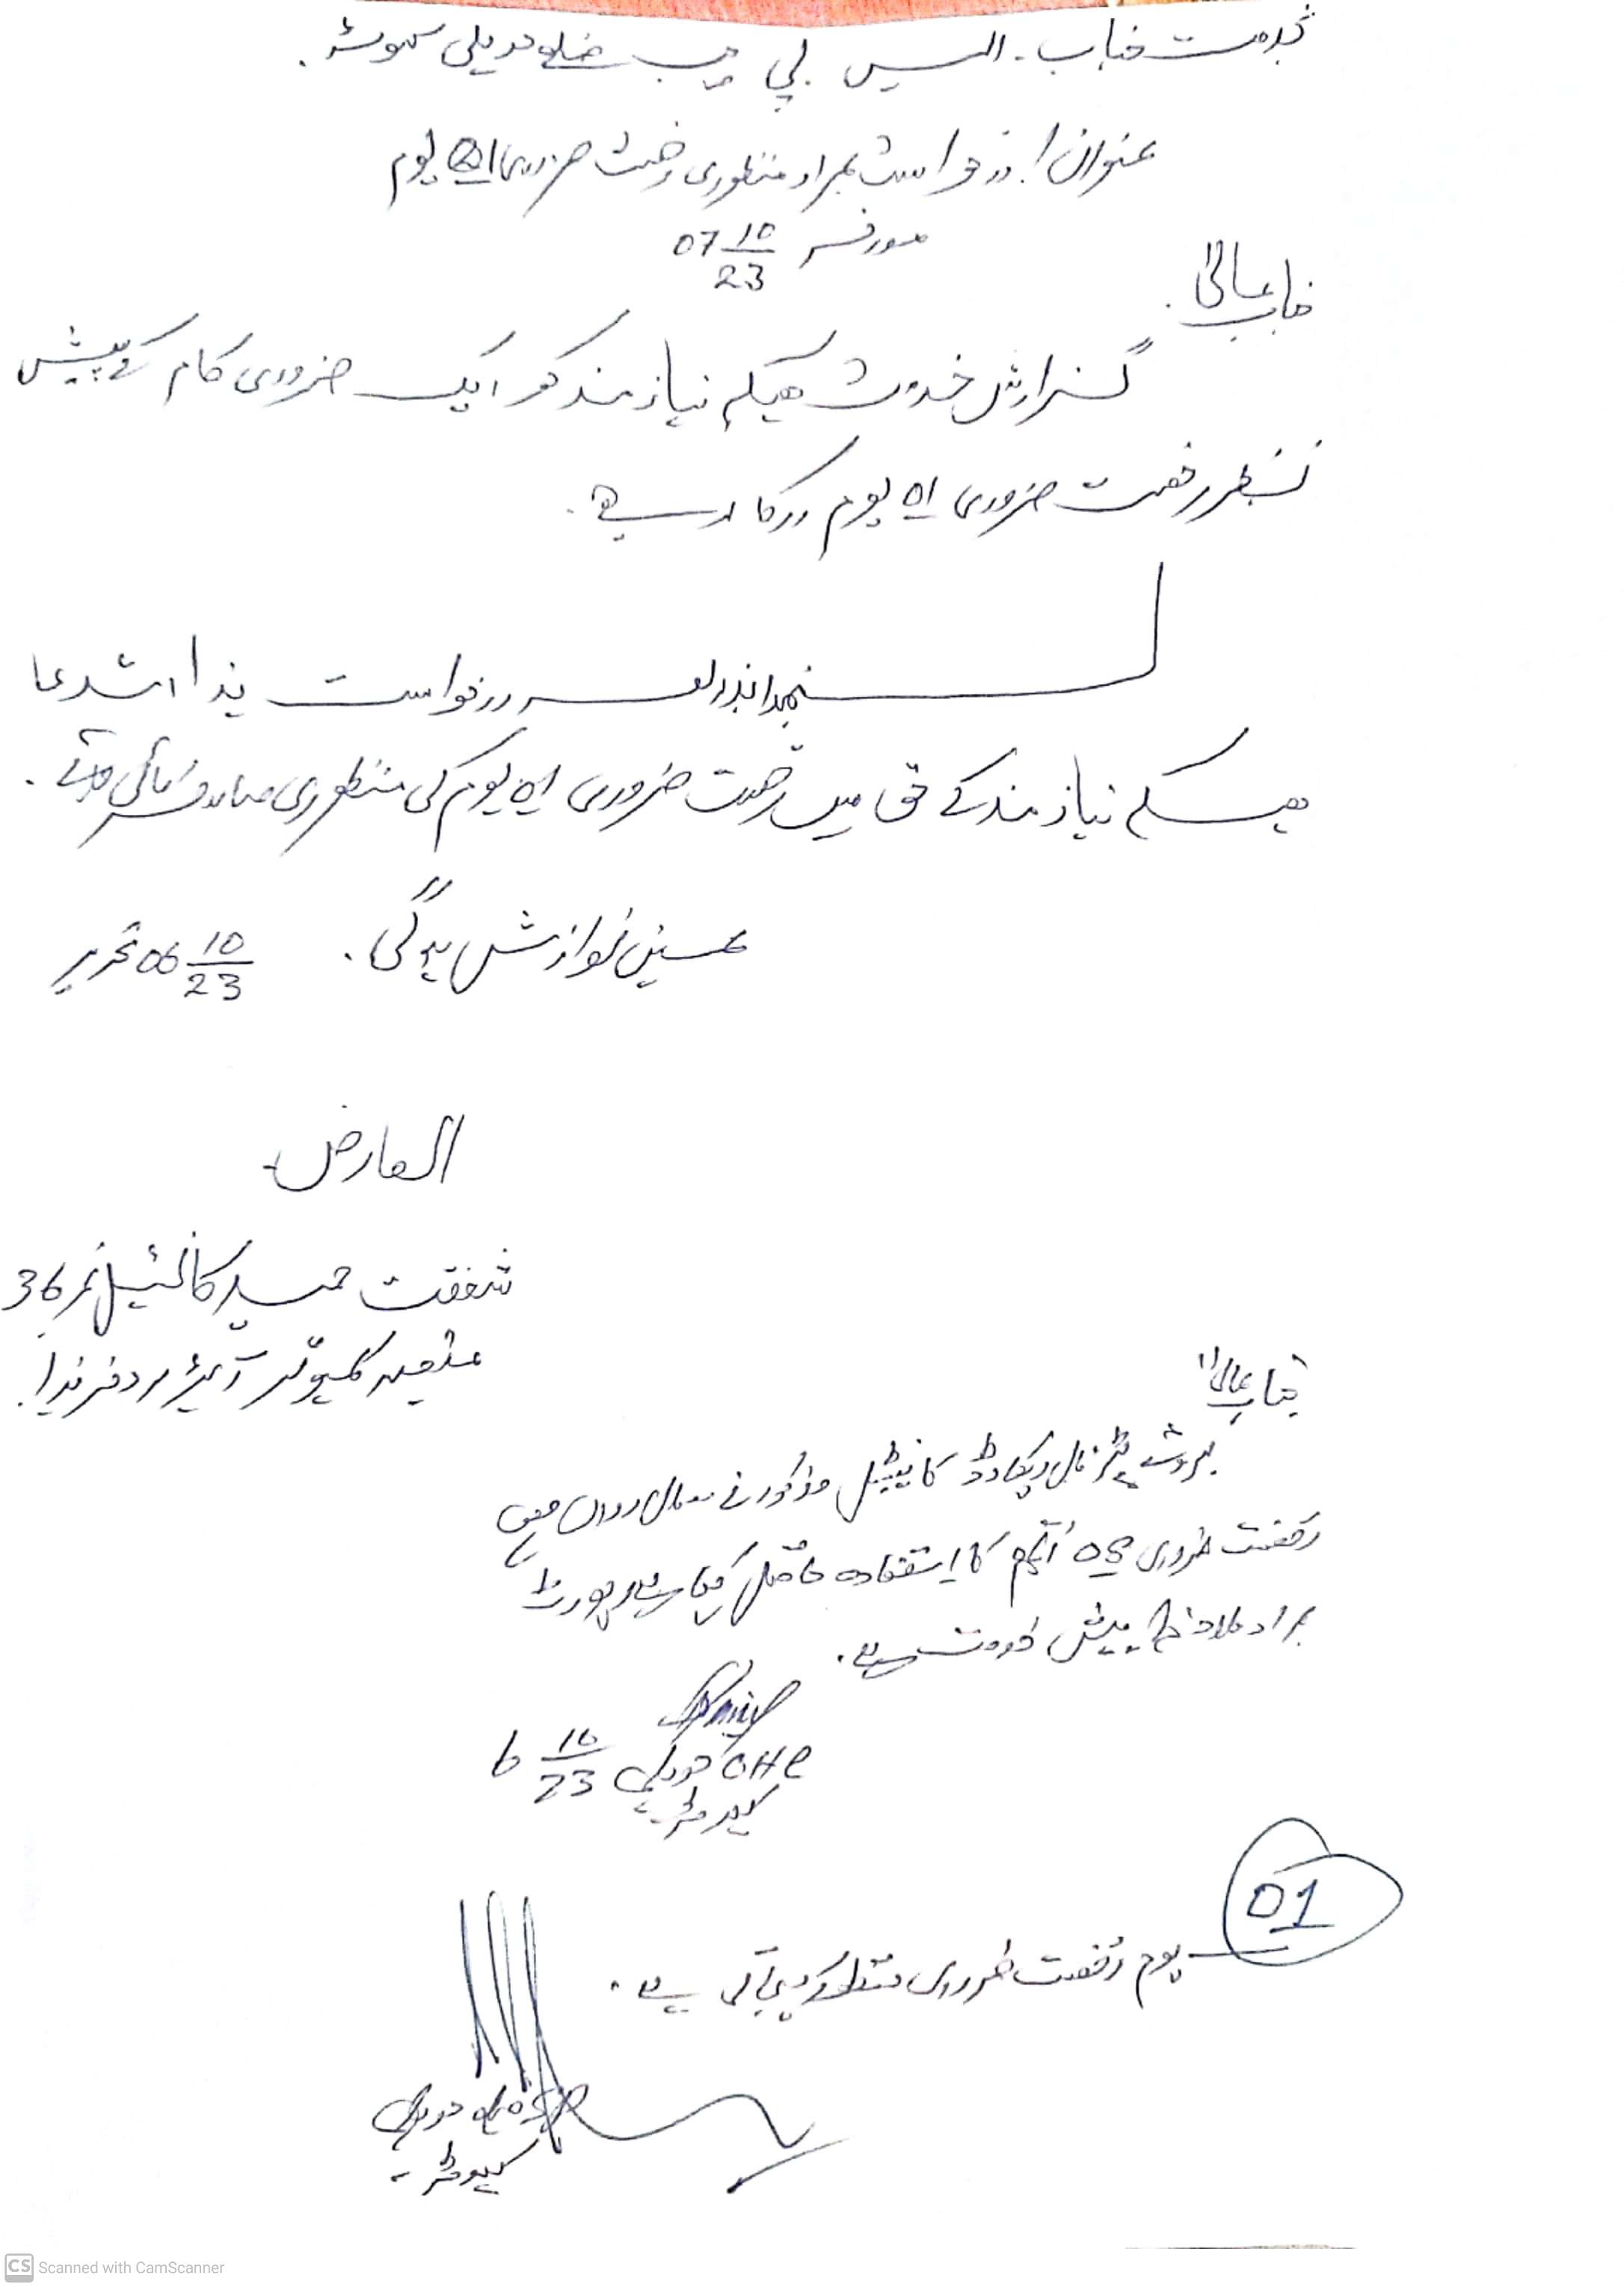 بخدمت جناب ایس پی صاحب ضلع حویلی کہوٹہ۔
عنوان! درخواست بمراد منظوری رخصت ضروری 01 یوم
مورخہ 07 10/23
جناب عالی!
گزارش خدمت ہیکہ نیازمند کو ایک ضروری کام کے پیش
نظر رخصت ضروری 01 یوم درکار ہے۔
لہذا بذریعہ درخواست ہذا استدعا
ہیکہ نیازمند کے حق میں رخصت ضروری 01 یوم کی منظوری صادر فرمائی جائے۔
عین نوازش ہوگی۔ 06 10/23 تحریر
العارض
شفقت حمید کانسٹیبل نمبر 36
متعینہ کمپیوٹر آپریٹر دفتر ہذا۔
جناب عالی!
بروئے پرسنل ریکارڈ کانسٹیبل مذکور نے سال رواں میں
رخصت ضروری ایام کا استفادہ حاصل کیا ہے رپورٹ
بمراد ملاحظہ پیش خدمت ہے۔
OHC حویلی 6 10/23
کہوٹہ
01
یوم رخصت ضروری منظور کی جاتی ہے۔
SP ضلع حویلی
کہوٹہ
CS Scanned with CamScanner